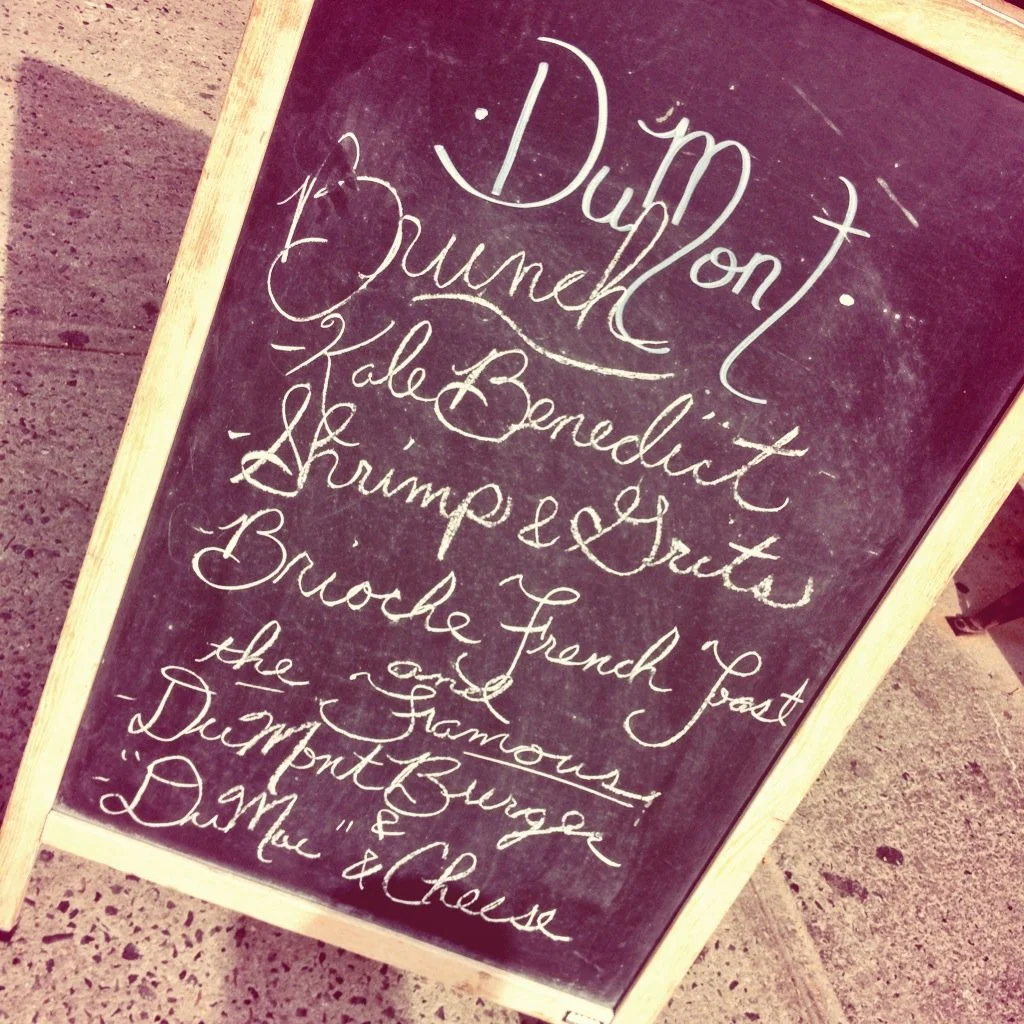 · DuMont ·
Brunch
- Kale Benedict
- Shrimp & Grits
- Brioche French Toast
and
the Famous!
- DuMont Burger
&
- "DuMac" & Cheese